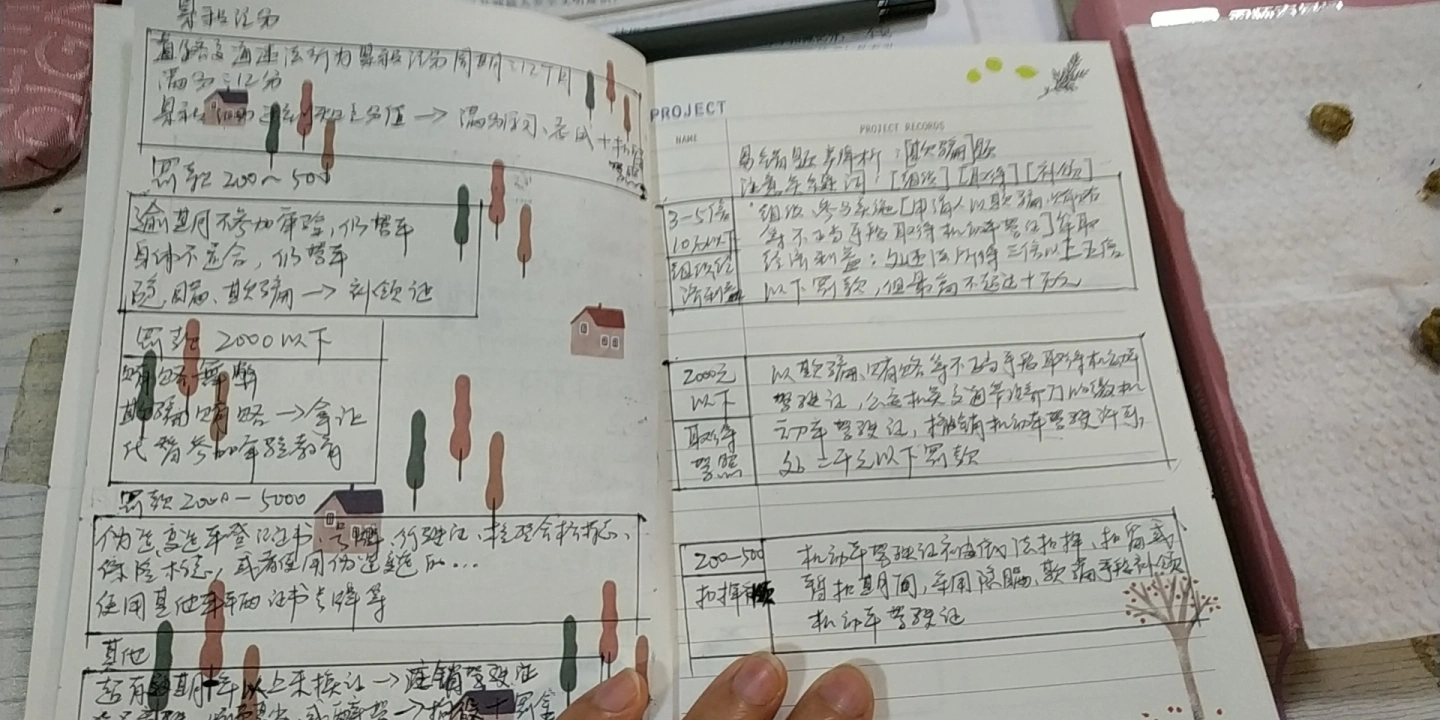 累积记分
道路交通违法行为累积记分周期:12个月
满分:12分
累积 达到规定分值 → 满分学习、考试 +
罚款 200~500
逾期不参加审验,仍驾车
身体不适合,仍驾车
隐瞒、欺骗 → 补领证
罚款 2000以下
贿赂舞弊
欺骗贿赂 → 拿证
代替参加审验教育
罚款 2000-5000
伪造变造车登记证书、号牌、行驶证、检验合格标志、
保险标志,或者使用伪造变造的...
使用其他车辆的证书号牌等
其他
超有效期一年以上未换证 → 注销驾驶证
PROJECT
NAME
PROJECT RECORDS
易错题考点解析:[欺骗]题
注意关键词:[组织][取得][补领]
3-5倍
10万以下
组织经
济利益
组织、参与实施[申请人以欺骗、贿赂
等不正当手段取得机动车驾驶证]牟取
经济利益:处违法所得三倍以上五倍
以下罚款,但最高不超过十万元
2000元
以下
取得
驾照
以欺骗、贿赂等不正当手段取得机动车
驾驶证,公安机关交通管理部门收缴机
动车驾驶证,撤销机动车驾驶许可,
处二千元以下罚款
200-500
扣押
机动车驾驶证被依法扣押、扣留或
暂扣期间,采用隐瞒、欺骗手段补领
机动车驾驶证